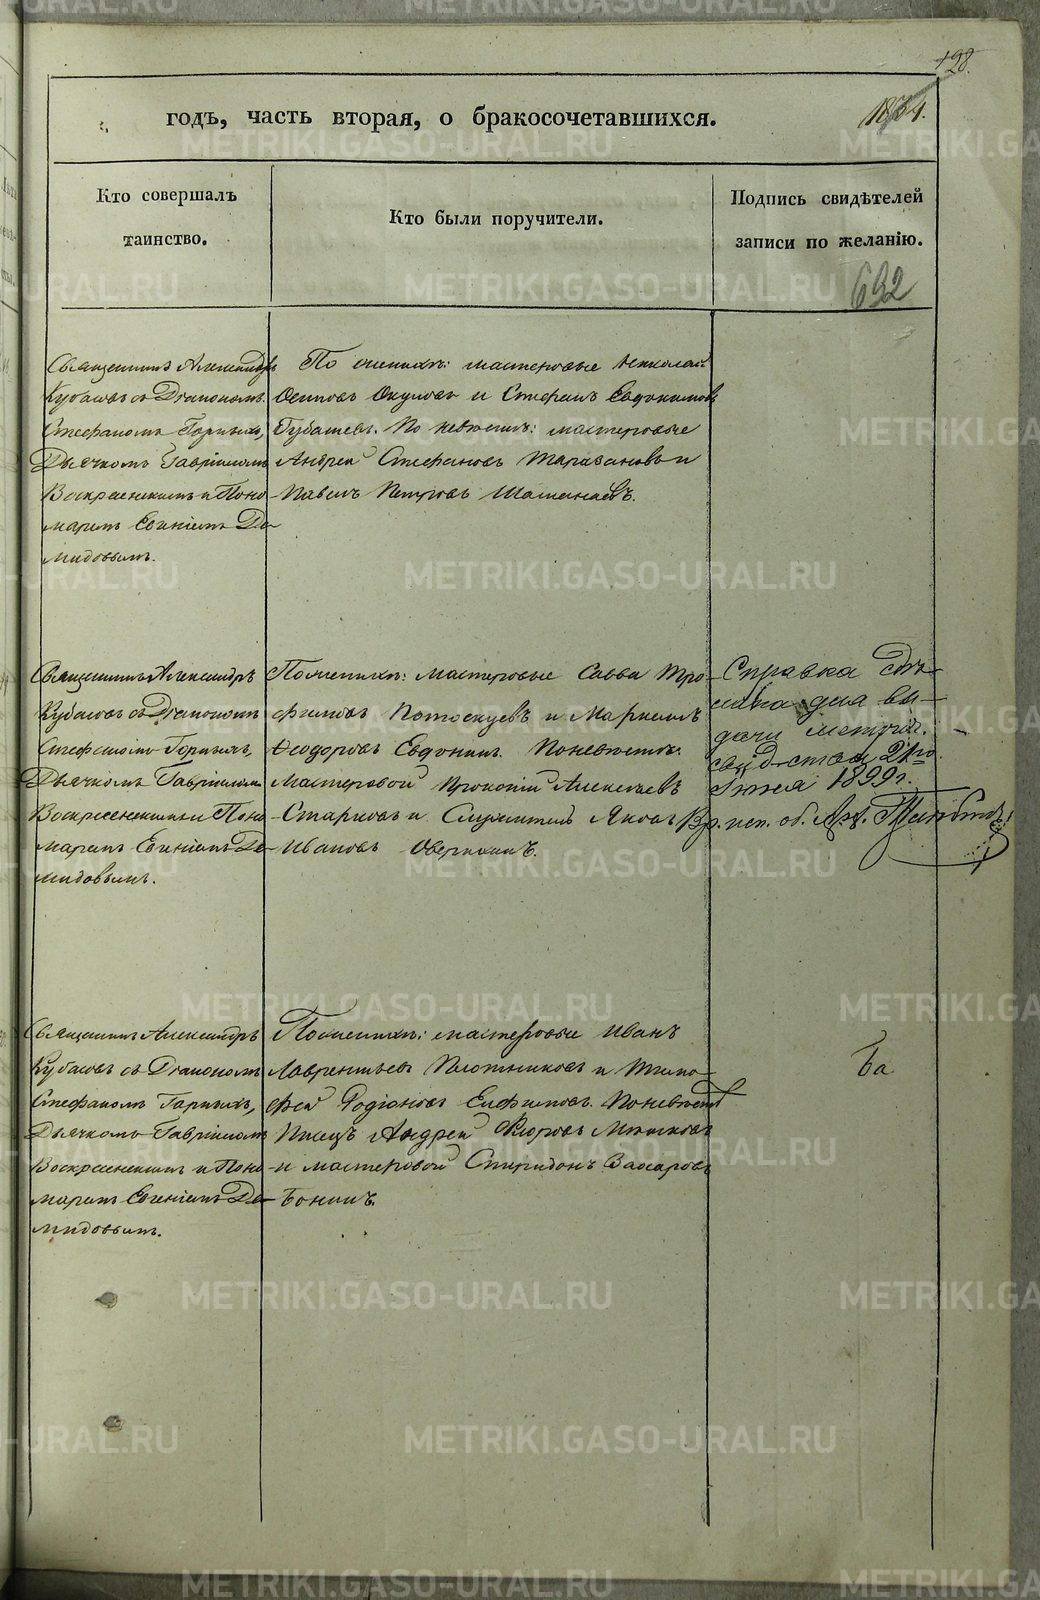 198.
годъ, часть вторая, о бракосочетавшихся.
Кто совершалъ
таинство.
Кто были поручители.
Подпись свидѣтелей
записи по желанію.
692
Священникъ Александръ
Кубасовъ съ Діакономъ
Стефаномъ Горныхъ,
Дьячкомъ Гавріиломъ
Воскресенскимъ и Поно-
маремъ Евгеніемъ Де-
мидовымъ.
По женихѣ: мастеровые Николай
Осиповъ Окуловъ и Стефанъ Евдокимовъ
Губашевъ. По невѣстѣ: мастеровые
Андрей Стефановъ Таразановъ и
Павелъ Петровъ
Священникъ Александръ
Кубасовъ съ Діакономъ
Стефаномъ Горныхъ,
Дьячкомъ Гавріиломъ
Воскресенскимъ и Поно-
маремъ Евгеніемъ Де-
мидовымъ.
По женихѣ: мастеровые Савва Тро-
фимовъ Потоскуевъ и Маркелъ
Ѳеодоровъ Евдокимъ. По невѣстѣ:
Мастеровой Прокопій Алексѣевъ
Старковъ и Служитель Яковъ
Ивановъ Оверкинъ.
Справка сдѣ-
лана для вы-
дачи метрич.
свид-ства 21го
1899 г.
Вр. исп. об.
Священникъ Александръ
Кубасовъ съ Діакономъ
Стефаномъ Горныхъ,
Дьячкомъ Гавріиломъ
Воскресенскимъ и Поно-
маремъ Евгеніемъ Де-
мидовымъ.
По женихѣ: мастеровые Иванъ
Лаврентьевъ Плотниковъ и Тимо-
фей Родіоновъ Елфимовъ. По невѣстѣ
Писецъ Андрей Ѳедоровъ
и мастеровой Спиридонъ Захаровъ
Бонинъ.
METRIKI.GASO-URAL.RU